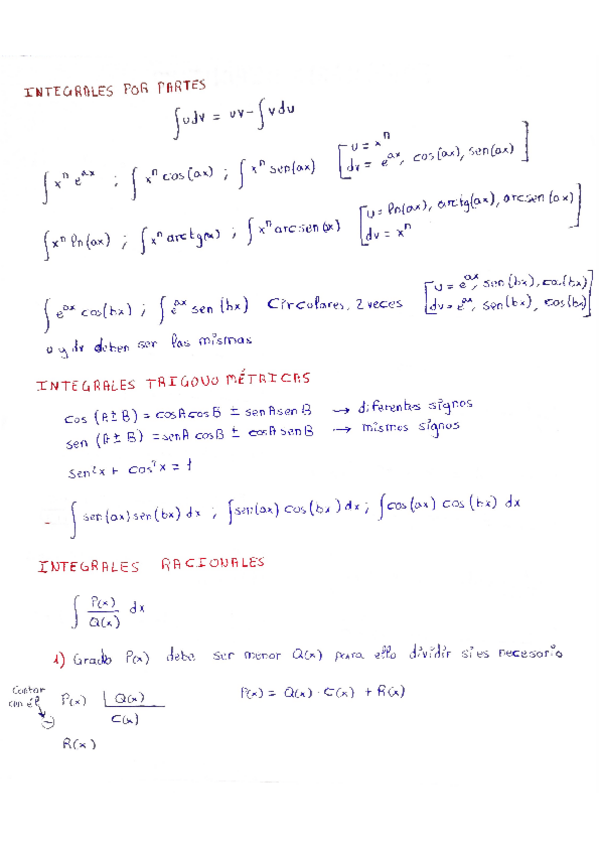 INTEGRALES POR PARTES
∫udv = uv-∫vdu
∫xⁿ eᵃˣ ; ∫xⁿ cos(ax) ; ∫xⁿ sen(ax) [u = xⁿ
dv = eᵃˣ, cos(ax), sen(ax)]
∫xⁿ ln(ax) ; ∫xⁿ arctg(ax) ; ∫xⁿ arcsen(ax) [u = ln(ax), arctg(ax), arcsen(ax)
dv = xⁿ]
∫eᵃˣ cos(bx) ; ∫eᵃˣ sen(bx) Circulares, 2 veces [u = eᵃˣ, sen(bx), cos(bx)
dv = eᵃˣ, sen(bx), cos(bx)]
u y dv deben ser las mismas
INTEGRALES TRIGONOMÉTRICAS
cos (A±B) = cosA cosB ± senA sen B → diferentes signos
sen (A±B) = senA cosB ± cosA sen B → mismos signos
sen²x + cos²x = 1
- ∫sen(ax) sen(bx) dx ; ∫sen(ax) cos(bx) dx ; ∫cos(ax) cos(bx) dx
INTEGRALES RACIONALES
∫ P(x)/Q(x) dx
1) Grado P(x) debe ser menor Q(x) para ello dividir si es necesario
Contar
con él
P(x) | Q(x) P(x) = Q(x) · C(x) + R(x)
C(x)
R(x)